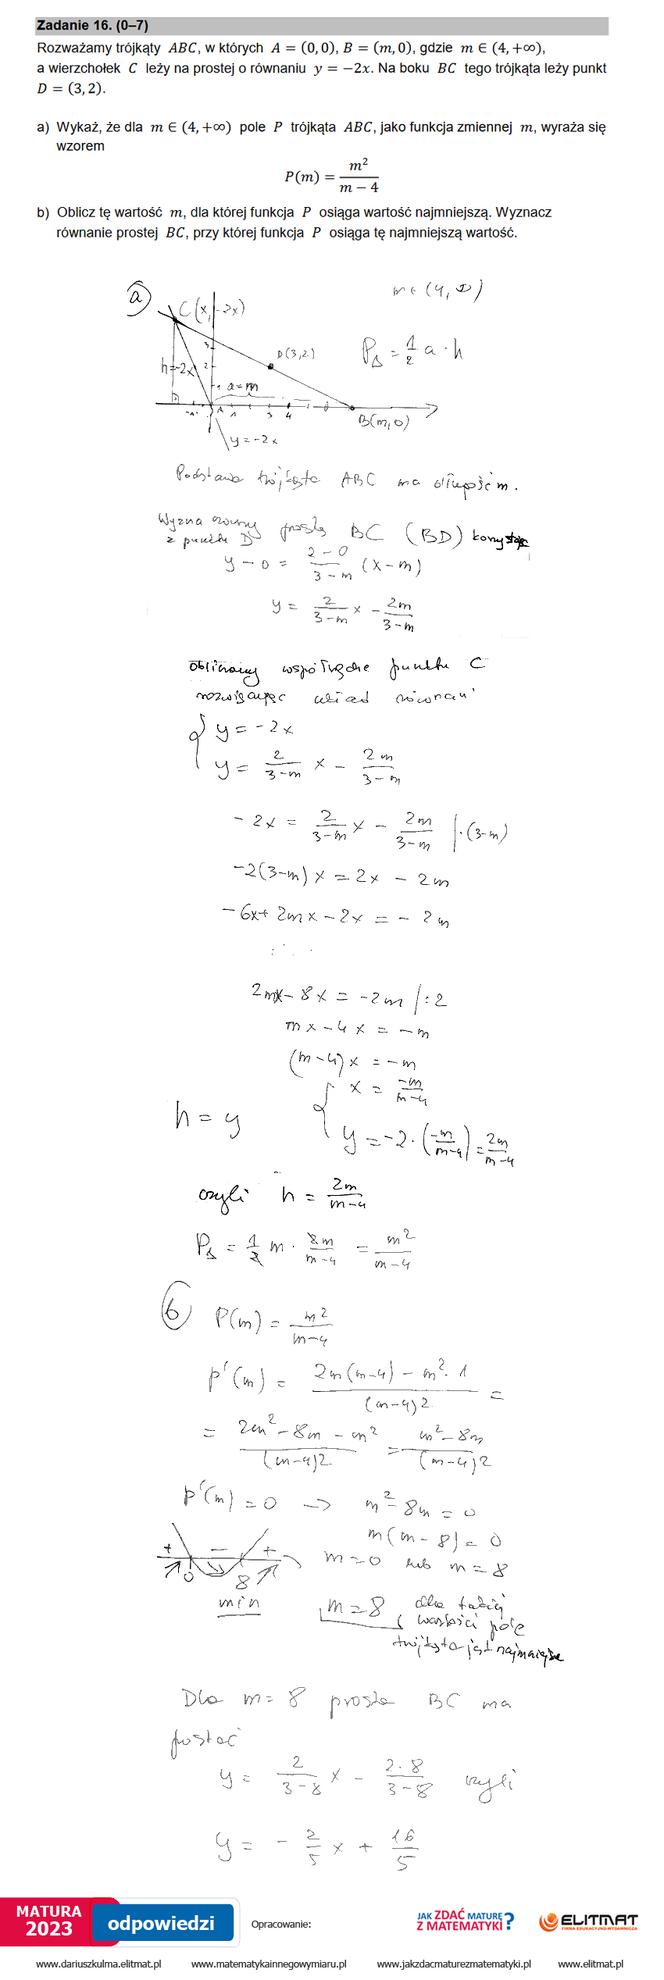 Zadanie 16. (0–7)
Rozważamy trójkąty ABC, w których A = (0, 0), B = (m, 0), gdzie m ∈ (4, +∞),
a wierzchołek C leży na prostej o równaniu y = −2x. Na boku BC tego trójkąta leży punkt
D = (3, 2).
a) Wykaż, że dla m ∈ (4, +∞) pole P trójkąta ABC, jako funkcja zmiennej m, wyraża się
wzorem
P(m) = m²/(m − 4)
b) Oblicz tę wartość m, dla której funkcja P osiąga wartość najmniejszą. Wyznacz
równanie prostej BC, przy której funkcja P osiąga tę najmniejszą wartość.
a) C(x, -2x) m ∈ (4, ∞)
D(3,2) P△ = 1/2 a · h
h=-2x a=m
A 1 3 4 B(m,0)
y=-2x
Podstawa trójkąta ABC ma długość m.
Wyznaczmy prostą BC (BD) korzystając
z punktu D
y - 0 = (2-0)/(3-m) (x-m)
y = 2/(3-m) x - 2m/(3-m)
obliczmy współrzędne punktu C
rozwiązując układ równań
{ y = -2x
y = 2/(3-m) x - 2m/(3-m)
-2x = 2/(3-m) x - 2m/(3-m) | ·(3-m)
-2(3-m)x = 2x - 2m
-6x + 2mx - 2x = -2m
2mx - 8x = -2m | :2
mx - 4x = -m
(m-4)x = -m
{ x = -m/(m-4)
h = y y = -2·(-m/(m-4)) = 2m/(m-4)
czyli h = 2m/(m-4)
P△ = 1/2 m · 2m/(m-4) = m²/(m-4)
b) P(m) = m²/(m-4)
p'(m) = (2m(m-4) - m²·1)/(m-4)² =
= (2m² - 8m - m²)/(m-4)² = (m² - 8m)/(m-4)²
p'(m) = 0 → m² - 8m = 0
m(m-8) = 0
+ - + m=0 lub m=8
0 8
min m=8 dla takiej
wartości pole
trójkąta jest najmniejsze
Dla m=8 prosta BC ma
postać
y = 2/(3-8) x - 2·8/(3-8) czyli
y = -2/5 x + 16/5
MATURA
2023
odpowiedzi
Opracowanie:
JAK ZDAĆ MATURĘ
Z MATEMATYKI?
ELITMAT
FIRMA EDUKACYJNO-WYDAWNICZA
www.dariuszkulma.elitmat.pl www.matematykainnegowymiaru.pl www.jakzdacmaturezmatematyki.pl www.elitmat.pl